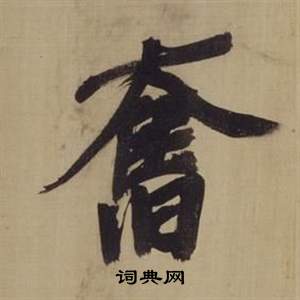 奮
词典网